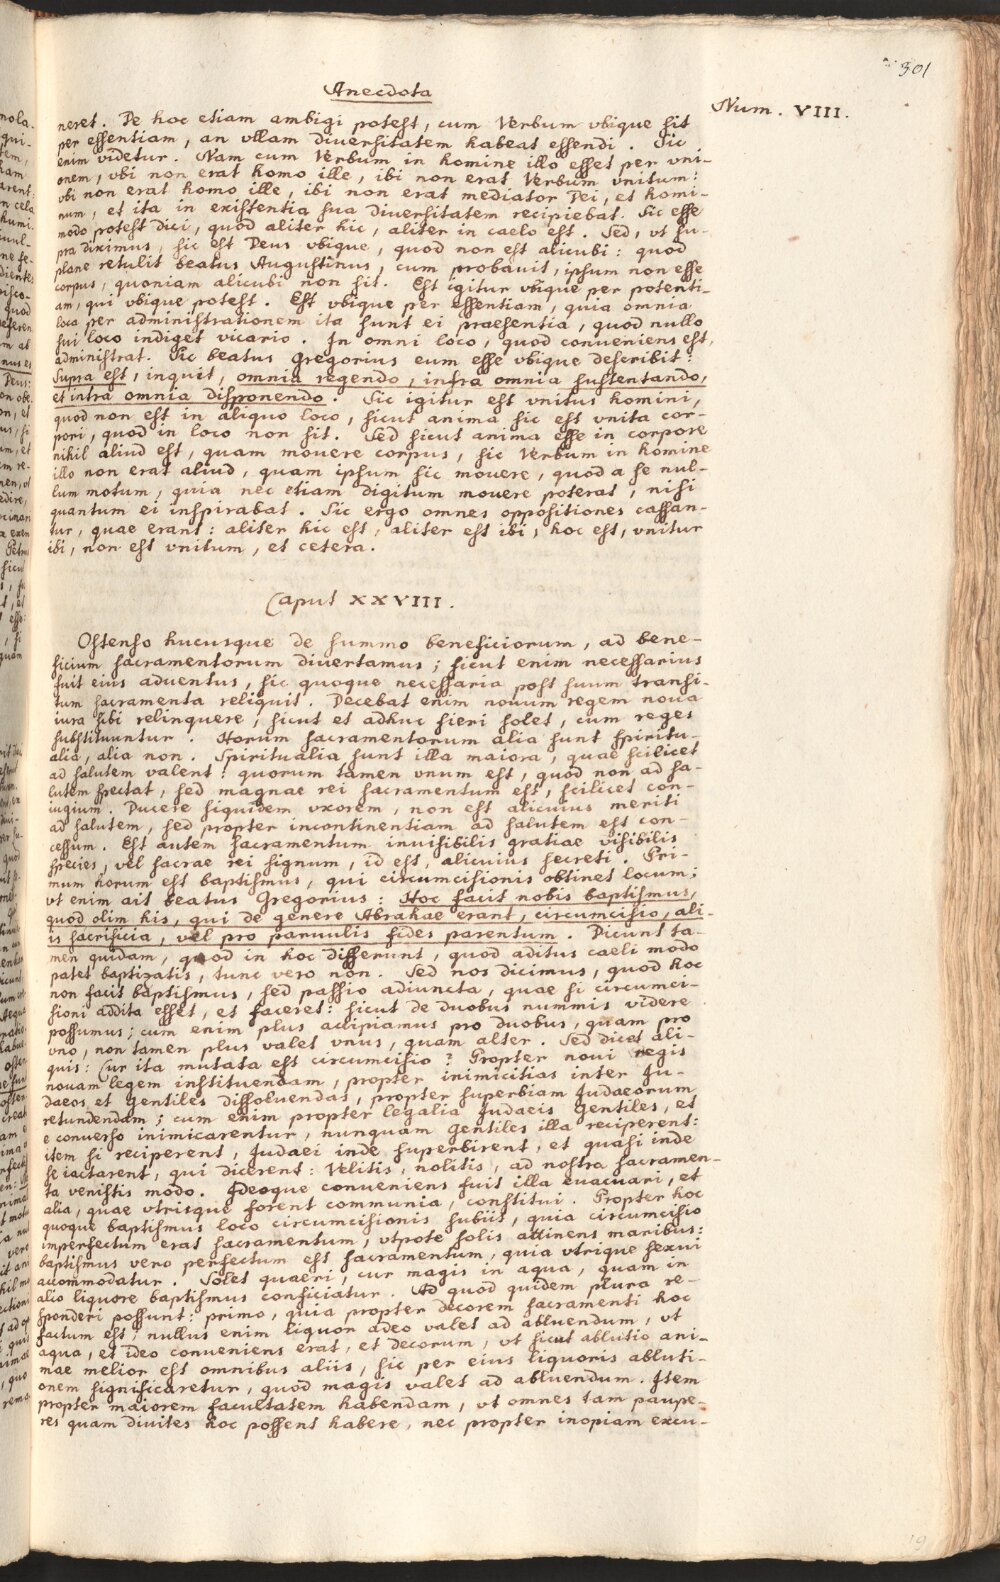 301
Anecdota
Num. VIII.
neret. De hoc etiam ambigi potest, cum Verbum vbique sit
per essentiam, an vllam diuersitatem habeat essendi. Sic
enim videtur. Nam cum Verbum in homine illo esset per vni-
onem, vbi non erat homo ille, ibi non erat Verbum vnitum:
vbi non erat homo ille, ibi non erat mediator Dei, et homi-
num, et ita in existentia sua diuersitatem recipiebat. Sic esse
modo potest dici, quod aliter hic, aliter in caelo est. Sed, vt su-
pra diximus, sic est Deus vbique, quod non est alicubi: quod
plane retulit beatus Augustinus, cum probauit, ipsum non esse
corpus, quoniam alicubi non sit. Est igitur vbique per potenti-
am, qui vbique potest. Est vbique per essentiam, quia omnia
loca per administrationem ita sunt ei praesentia, quod nullo
sui loco indiget vicario. In omni loco, quod conueniens est,
administrat. Sic beatus Gregorius eum esse vbique describit:
Supra est, inquit, omnia regendo, infra omnia sustentando,
et intra omnia disponendo. Sic igitur est vnitus homini,
quod non est in aliquo loco, sicut anima sic est vnita cor-
pori, quod in loco non sit. Sed sicut anima esse in corpore
nihil aliud est, quam mouere corpus, sic Verbum in homine
illo non erat aliud, quam ipsum sic mouere, quod a se nul-
lum motum, quia nec etiam digitum mouere poterat, nisi
quantum ei inspirabat. Sic ergo omnes oppositiones cassan-
tur, quae erant: aliter hic est, aliter est ibi, hoc est, vnitur
ibi, non est vnitum, et cetera.
Caput XXVIII.
Ostenso hucusque de summo beneficiorum, ad bene-
ficium sacramentorum diuertamus; sicut enim necessarius
fuit eius aduentus, sic quoque necessaria post suum transi-
tum sacramenta reliquit. Decebat enim nouum regem noua
iura sibi relinquere, sicut et adhuc fieri solet, cum reges
substituuntur. Horum sacramentorum alia sunt spiritu-
alia, alia non. Spiritualia sunt illa maiora, quae scilicet
ad salutem valent: quorum tamen vnum est, quod non ad sa-
lutem spectat, sed magnae rei sacramentum est, scilicet con-
iugium. Ducere siquidem vxorem, non est alicuius meriti
ad salutem, sed propter incontinentiam ad salutem est con-
cessum. Est autem sacramentum inuisibilis gratiae visibilis
species, vel sacrae rei signum, id est, alicuius secreti. Pri-
mum horum est baptismus, qui circumcisionis obtinet locum;
vt enim ait beatus Gregorius: Hoc facit nobis baptismus,
quod olim his, qui de genere Abrahae erant, circumcisio, ali-
is sacrificia, vel pro paruulis fides parentum. Dicunt ta-
men quidam, quod in hoc differunt, quod aditus caeli modo
patet baptizatis, tunc vero non. Sed nos dicimus, quod hoc
non facit baptismus, sed passio adiuncta, quae si circumci-
sioni addita esset, et faceret: sicut de duobus nummis videre
possumus; cum enim plus accipiamus pro duobus, quam pro
vno, non tamen plus valet vnus, quam alter. Sed dicet ali-
quis: Cur ita mutata est circumcisio? Propter noui regis
nouam legem instituendam, propter inimicitias inter Ju-
daeos et Gentiles dissoluendas, propter superbiam Judaeorum
retundendam; cum enim propter legalia Judaeis Gentiles, et
e conuerso inimicarentur, nunquam Gentiles illa reciperent:
item si reciperent, Judaei inde superbirent, et quasi inde
se iactarent, qui dicerent: Velitis, nolitis, ad nostra sacramen-
ta venistis modo. Ideoque conueniens fuit illa euacuari, et
alia, quae vtrisque forent communia, constitui. Propter hoc
quoque baptismus loco circumcisionis subiit, quia circumcisio
imperfectum erat sacramentum, vtpote solis attinens maribus:
baptismus vero perfectum est sacramentum, quia vtrique sexui
accommodatur. Solet quaeri, cur magis in aqua, quam in
alio liquore baptismus conficiatur. Ad quod quidem plura re-
sponderi possunt: primo, quia propter decorem sacramenti hoc
factum est, nullus enim liquor adeo valet ad abluendum, vt
aqua, et ideo conueniens erat, et decorum, vt sicut ablutio ani-
mae melior est omnibus aliis, sic per eius liquoris abluti-
onem significaretur, quod magis valet ad abluendum. Item
propter maiorem facultatem habendam, vt omnes tam paupe-
res quam diuites hoc possent habere, nec propter inopiam excu-